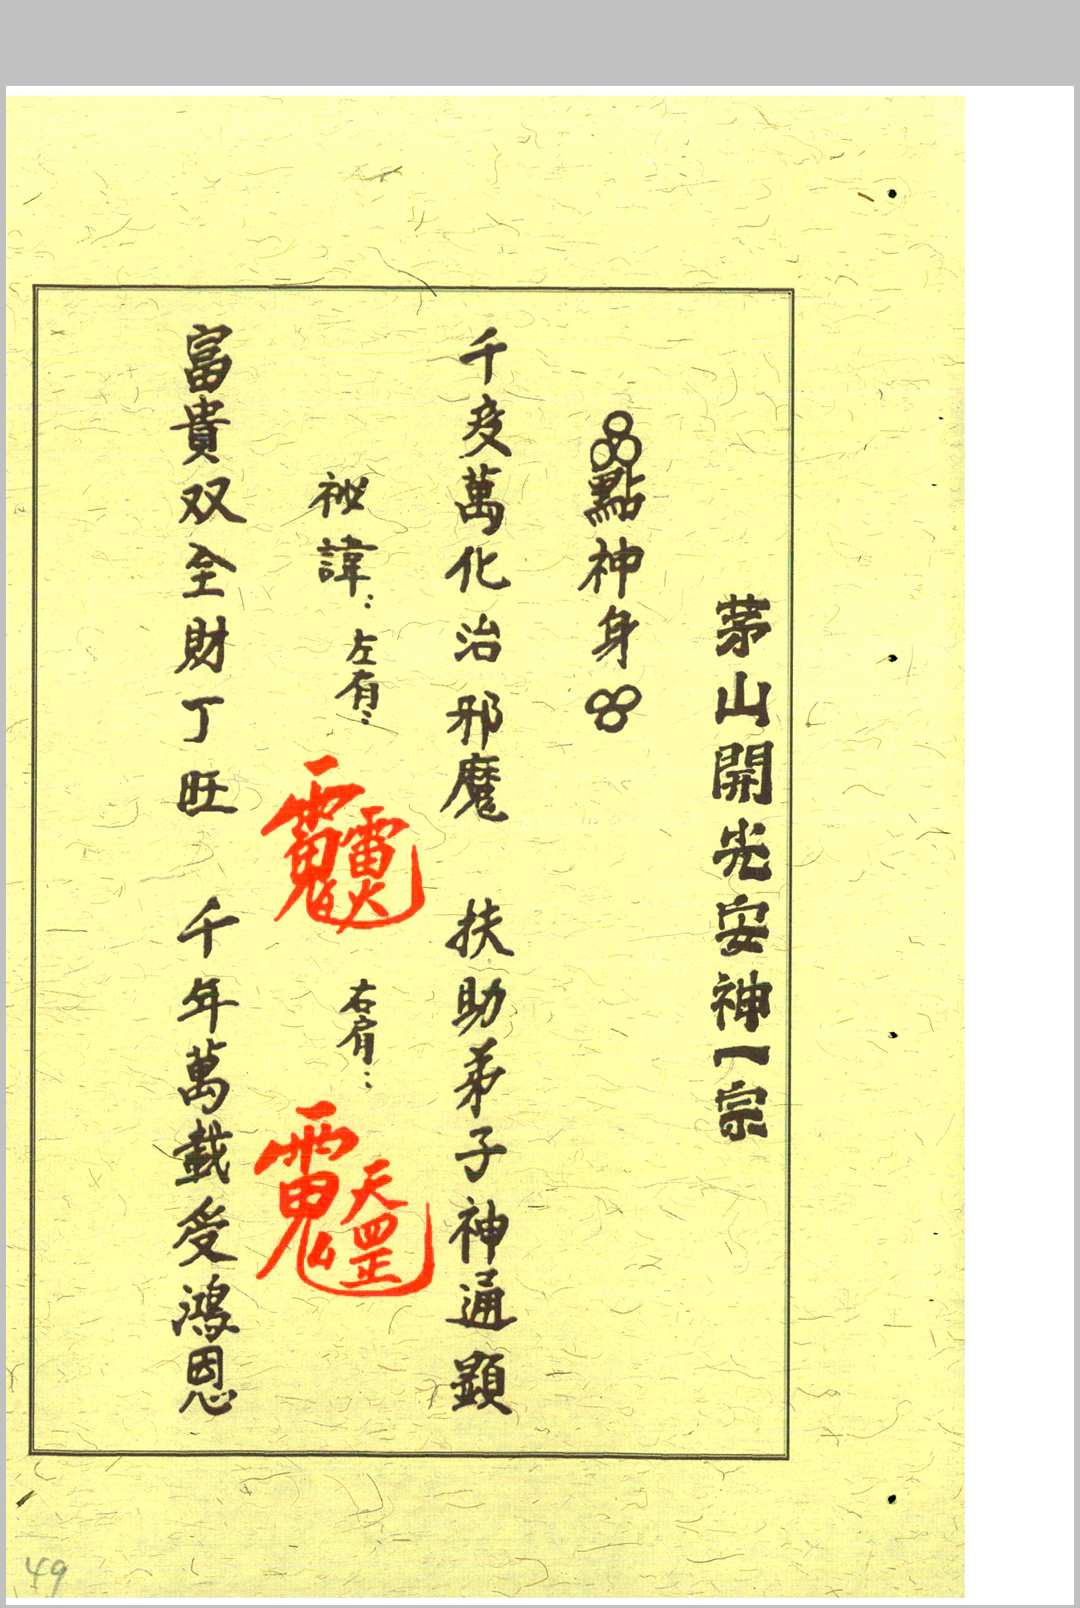 茅山開光安神一宗
點神身
千疫萬化治邪魔 扶助弟子神通顯
祕諱：左有：
右肩：
富貴双全財丁旺 千年萬載受鴻恩
49